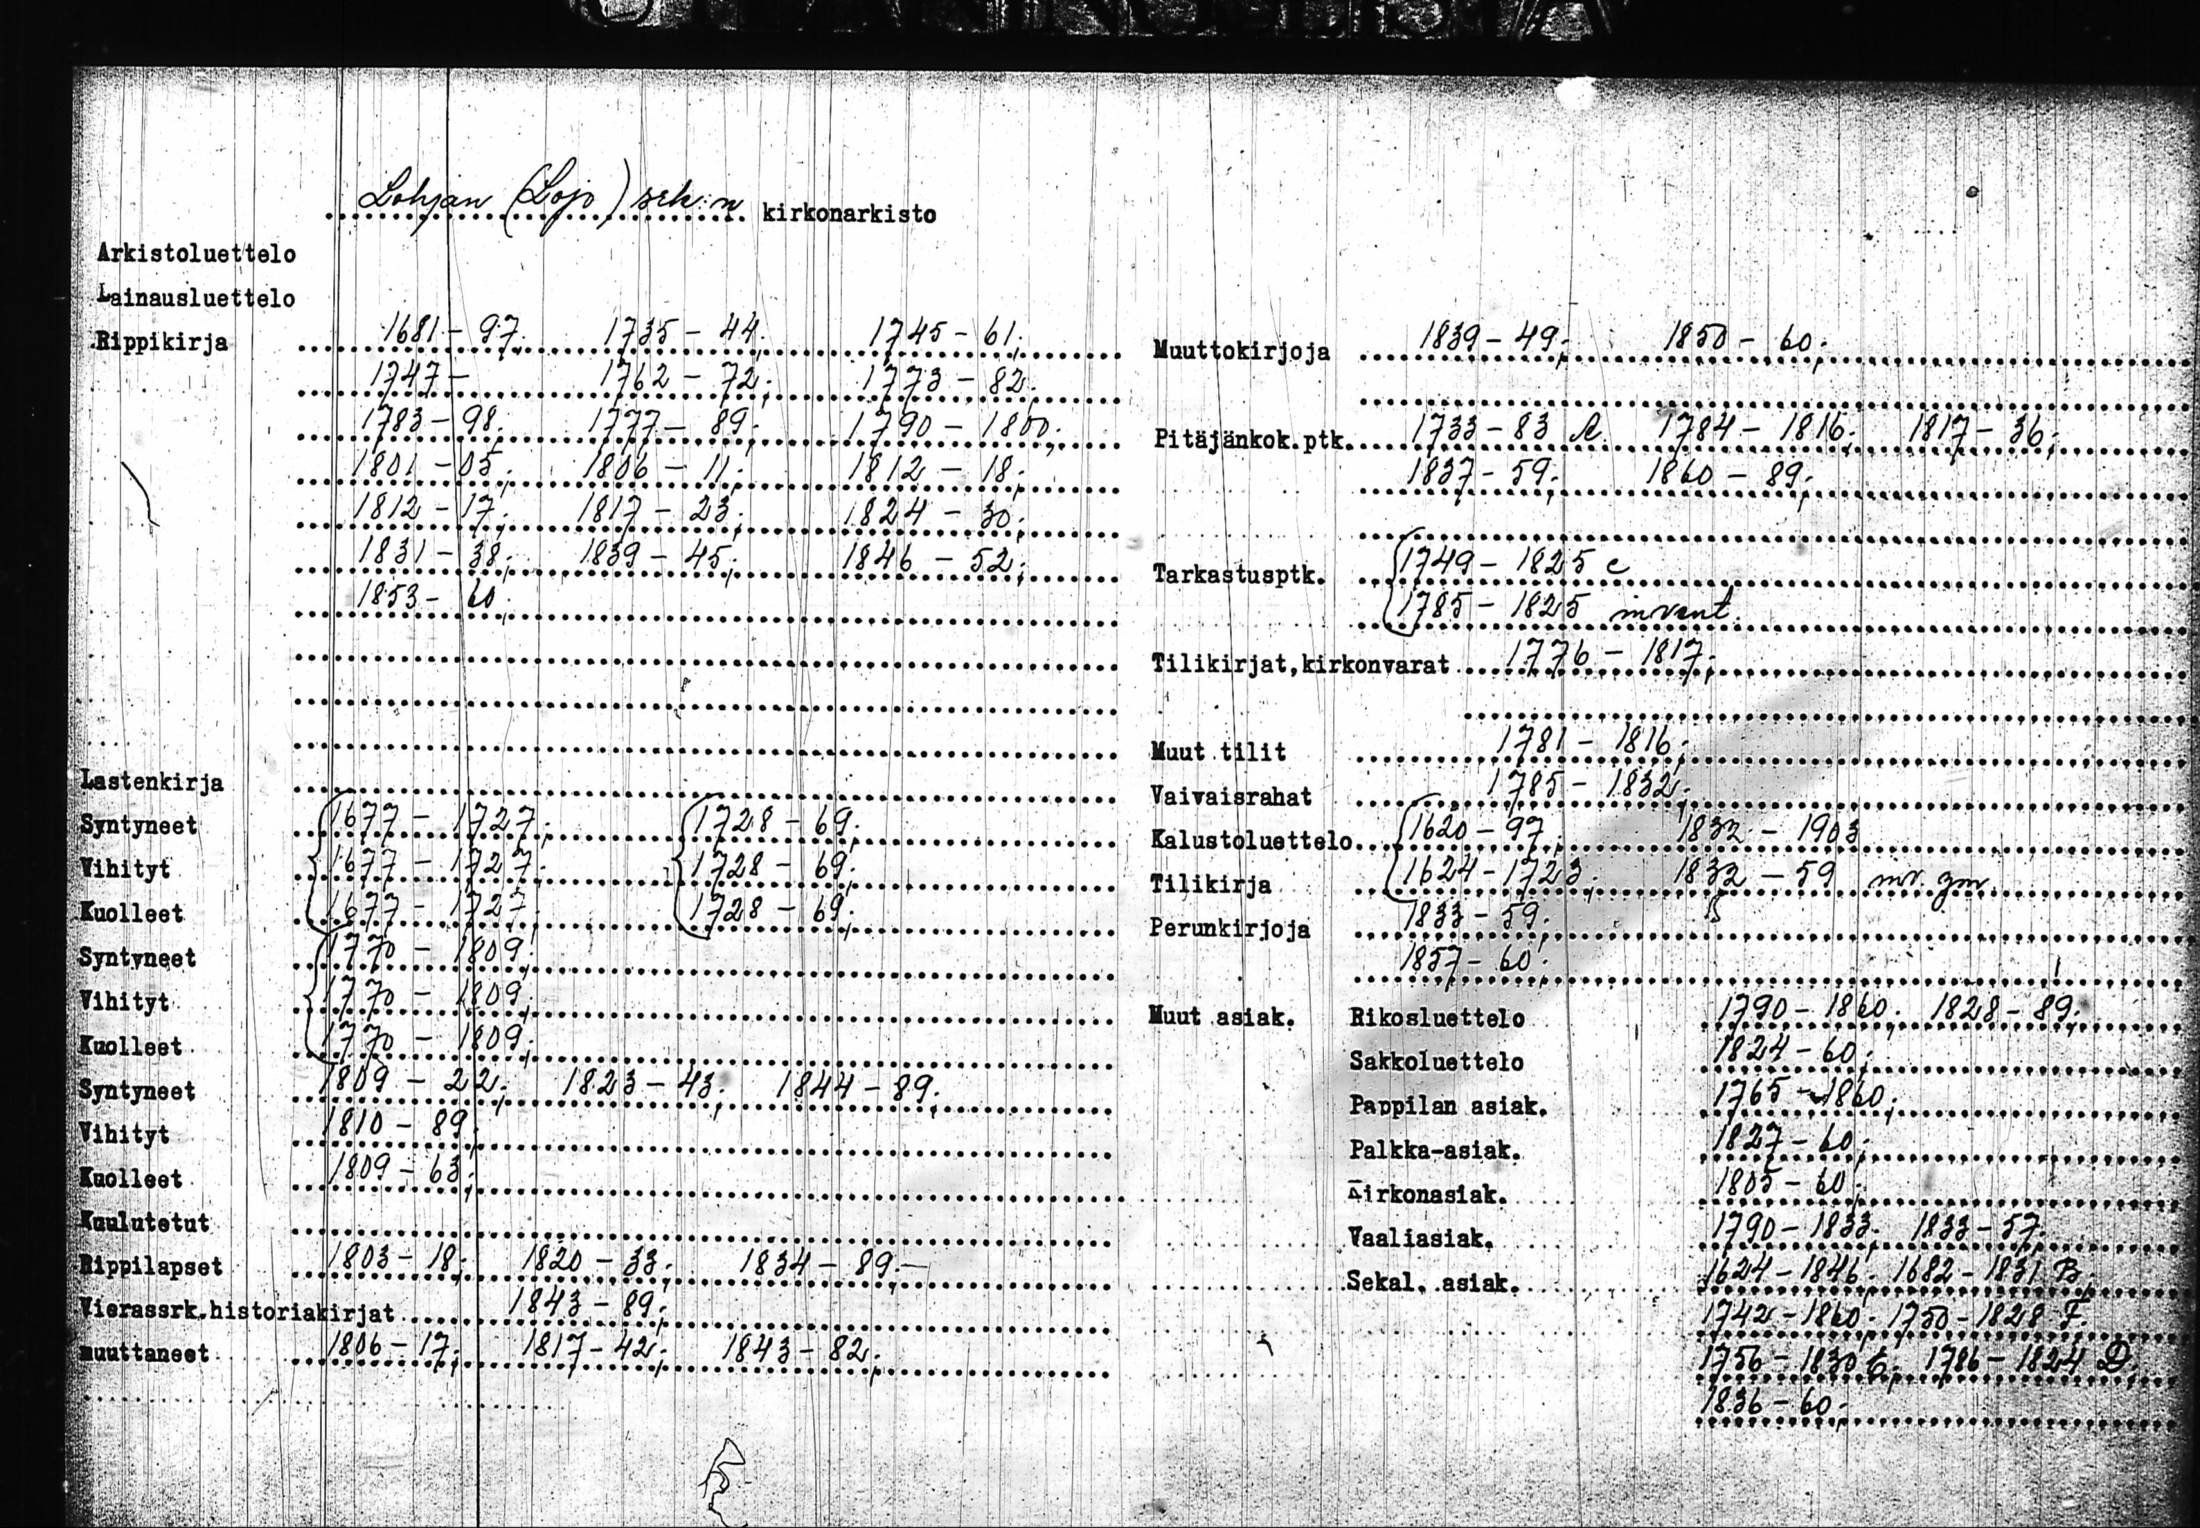 Lohjan (Lojo) srk:n kirkonarkisto
Arkistoluettelo
Lainausluettelo
Rippikirja 1681-97. 1735-44. 1745-61.
1747- 1762-72. 1773-82.
1783-98. 1777-89. 1790-1800.
1801-05. 1806-11. 1812-18.
1812-17. 1817-23. 1824-30.
1831-38. 1839-45. 1846-52.
1853-60.
Lastenkirja
Syntyneet 1677-1727. 1728-69.
Vihityt 1677-1727. 1728-69.
Kuolleet 1677-1727. 1728-69.
Syntyneet 1770-1809.
Vihityt 1770-1809.
Kuolleet 1770-1809.
Syntyneet 1809-22. 1823-43. 1844-89.
Vihityt 1810-89.
Kuolleet 1809-63.
Kuulutetut
Rippilapset 1803-18. 1820-33. 1834-89.-
Vierassrk.historiakirjat 1843-89.
muuttaneet 1806-17. 1817-42. 1843-82.
Muuttokirjoja 1839-49. 1850-60.
Pitäjänkok.ptk. 1733-83 A. 1784-1816. 1817-36.
1837-59. 1860-89.
Tarkastusptk. 1749-1825 c
1785-1825 invent.
Tilikirjat,kirkonvarat 1776-1817.
Muut tilit 1781-1816.
Vaivaisrahat 1785-1832.
Kalustoluettelo 1620-97. 1832-1903
Tilikirja 1624-1723. 1832-59
Perunkirjoja 1833-59.
1857-60.
Muut asiak. Rikosluettelo 1790-1860. 1828-89.
Sakkoluettelo 1824-60.
Pappilan asiak. 1765-1860.
Palkka-asiak. 1827-60.
Kirkonasiak. 1805-60.
Vaaliasiak. 1790-1833. 1833-57.
Sekal. asiak. 1624-1846. 1682-1831 B.
1742-1860. 1750-1828 F.
1756-1830 E. 1786-1824 D.
1836-60.